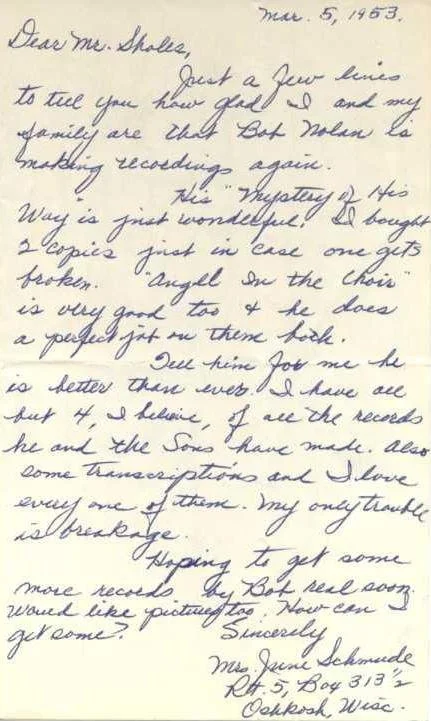 Mar. 5, 1953.
Dear Mr. Sholes,
Just a few lines
to tell you how glad I and my
family are that Bob Nolan is
making recordings again.
His "Mystery of His
Way" is just wonderful. I bought
2 copies just in case one gets
broken. "Angel In the Choir"
is very good too & he does
a perfect job on them both.
Tell him for me he
is better than ever. I have all
but 4, I believe, of all the records
he and the Sons have made. Also
some transcriptions and I love
every one of them. My only trouble
is breakage.
Hoping to get some
more records by Bob real soon.
Would like pictures too. How can I
get some?
Sincerely
Mrs. June Schmude
Rt. 5, Box 313 1/2
Oshkosh, Wisc.